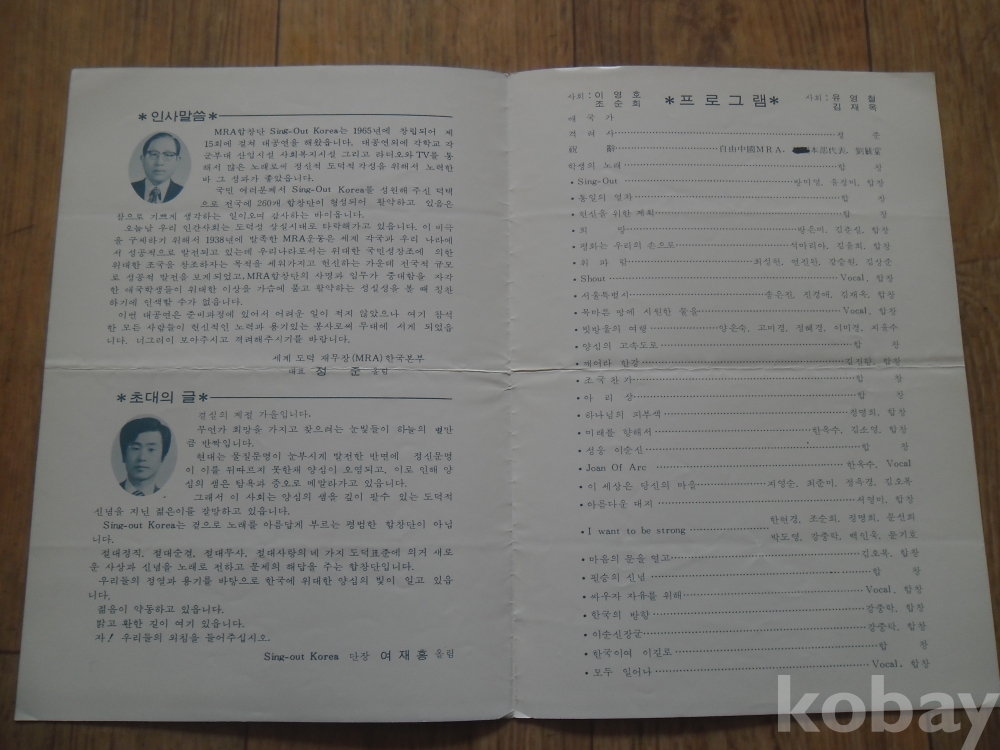 *인사말씀*
MRA합창단 Sing-Out Korea는 1965년에 창립되어 제
15회에 걸쳐 대공연을 해왔읍니다. 대공연외에 각학교 각
군부대 산업시설 사회복지시설 그리고 라디오와 TV를 통
해서 많은 노래로써 정신적 도덕적각성을 위해서 노력한
바 그 성과가 좋았읍니다.
국민 여러분께서 Sing-Out Korea를 성원해 주신 덕택
으로 전국에 260개 합창단이 형성되어 활약하고 있음은
참으로 기쁘게 생각하는 일이오며 감사하는 바이옵니다.
오늘날 우리 인간사회는 도덕성 상실시대로 타락해가고 있읍니다. 이 비극
을 구제하기 위해서 1938년에 발족한 MRA운동은 세계 각국과 우리 나라에
서 성공적으로 발전되고 있는데 우리나라로서는 위대한 국민성창조에 의한
위대한 조국을 창조하자는 목적을 세워가지고 헌신하는 가운데 전국적 규모
로 성공적 발전을 보게되었고, MRA합창단의 사명과 임무가 중대함을 자각
한 애국학생들이 위대한 이상을 가슴에 품고 활약하는 성실성을 볼 때 칭찬
하기에 인색할 수가 없읍니다.
이번 대공연은 준비과정에 있어서 어려운 일이 적지 않았으나 여기 참석
한 모든 사람들이 헌신적인 노력과 용기있는 봉사로써 무대에 서게 되었읍
니다. 너그러이 보아주시고 격려해주시기를 바랍니다.
세계 도덕 재무장(MRA)한국본부
대표 정 준 올림
*초대의 글*
결실의 계절 가을입니다.
무언가 희망을 가지고 찾으려는 눈빛들이 하늘의 별만
큼 반짝입니다.
현대는 물질문명이 눈부시게 발전한 반면에 정신문명
이 이를 뒤따르지 못한채 양심이 오염되고, 이로 인해 양
심의 샘은 탐욕과 증오로 메말라가고 있읍니다.
그래서 이 사회는 양심의 샘을 깊이 팔수 있는 도덕적
신념을 지닌 젊은이를 갈망하고 있읍니다.
Sing-out Korea는 겉으로 노래를 아름답게 부르는 평범한 합창단이 아닙
니다.
절대정직, 절대순결, 절대무사, 절대사랑의 네 가지 도덕표준에 의거 새로
운 사상과 신념을 노래로 전하고 문제의 해답을 주는 합창단입니다.
우리들의 정열과 용기를 바탕으로 한국에 위대한 양심의 빛이 일고 있읍
니다.
젊음이 약동하고 있읍니다.
밝고 환한 길이 여기 있읍니다.
자! 우리들의 외침을 들어주십시오.
Sing-out Korea 단장 여 재 홍 올림
사회 : 이 영 호
조 순 희
*프로그램*
사회 : 유 영 철
김 재 옥
애 국 가
격 려 사 정 준
祝 辭 自由中國MRA. 本部代表, 劉毓棠
학생의 노래 합 창
• Sing-Out 합창
• 통일의 열차 합 창
• 헌신을 위한 계획 합 창
• 희 망 합창
• 평화는 우리의 손으로 석마리아, 김율희, 합창
• 위 파 람 최성현, 연진완, 강중원, 김상순
• Shout Vocal, 합창
• 서울특별시 송은진, 진경애, 김재옥, 합창
• 목마른 땅에 시원한 물을 Vocal, 합창
• 빗방울의 여행 양은숙, 고미경, 정혜경, 이미경, 지용수
• 양심의 고속도로 합 창
• 깨어라 합창
• 조국찬가 합 창
• 아 리 랑 합 창
• 하나님의 피부색 정명희, 합창
• 미래를 향해서 한옥수, 김소영, 합창
• 성웅 이순신 합 창
• Joan Of Arc 한옥수, Vocal
• 이 세상은 당신의 마을 최영순, 최춘미, 정옥경, 김오목
• 아름다운 대지 서영미, 합창
• I want to be strong 한현경, 조순희, 정명희, 문선희
박도영, 강중락, 백인욱, 문기호
• 마음의 문을 열고 김오목, 합창
• 필승의 신념 합 창
• 싸우자 자유를 위해 Vocal, 합창
• 한국의 방향 강중락, 합창
• 이순신장군 강중락, 합창
• 한국이여 이길로 합 창
• 모두 일어나 Vocal, 합창
kobay